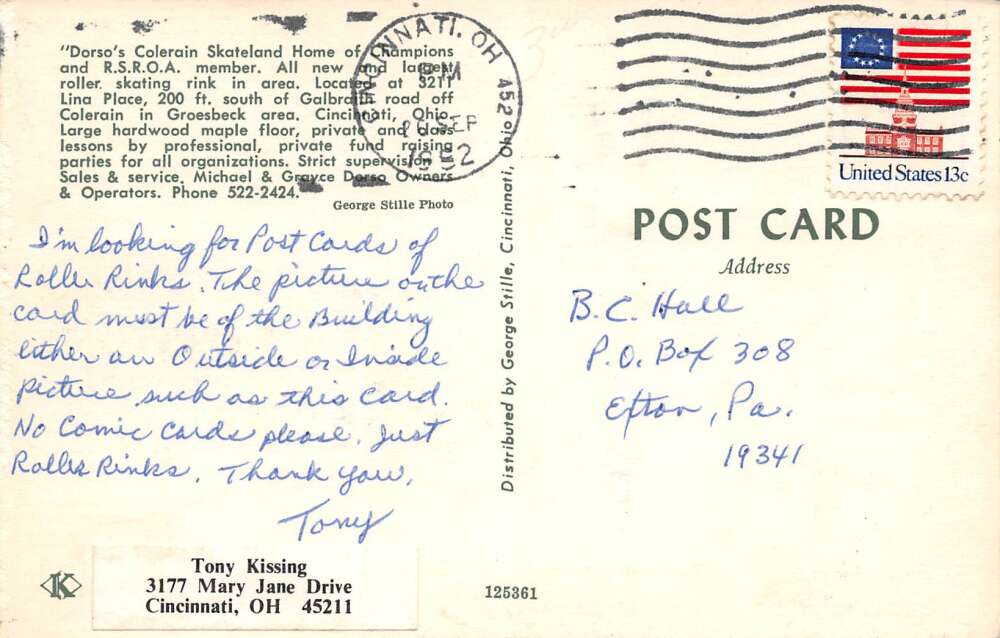 "Dorso's Colerain Skateland Home of Champions
and R.S.R.O.A. member. All new and largest
roller skating rink in area. Located at 3211
Lina Place, 200 ft. south of Galbraith road off
Colerain in Groesbeck area. Cincinnati, Ohio.
Large hardwood maple floor, private and class
lessons by professional, private fund raising
parties for all organizations. Strict supervision
Sales & service. Michael & Grayce Dorso Owners
& Operators. Phone 522-2424."
George Stille Photo
I'm looking for Post Cards of
Roller Rinks. The picture on the
card must be of the Building
Either an Outside or Inside
picture such as this card.
No Comic Cards please. Just
Roller Rinks. Thank you,
Tony
Tony Kissing
3177 Mary Jane Drive
Cincinnati, OH 45211
K
Distributed by George Stille, Cincinnati, Ohio
125361
CINCINNATI, OH 452
PM
SEP
United States 13c
POST CARD
Address
B.C. Hall
P.O. Box 308
Pa.
19341